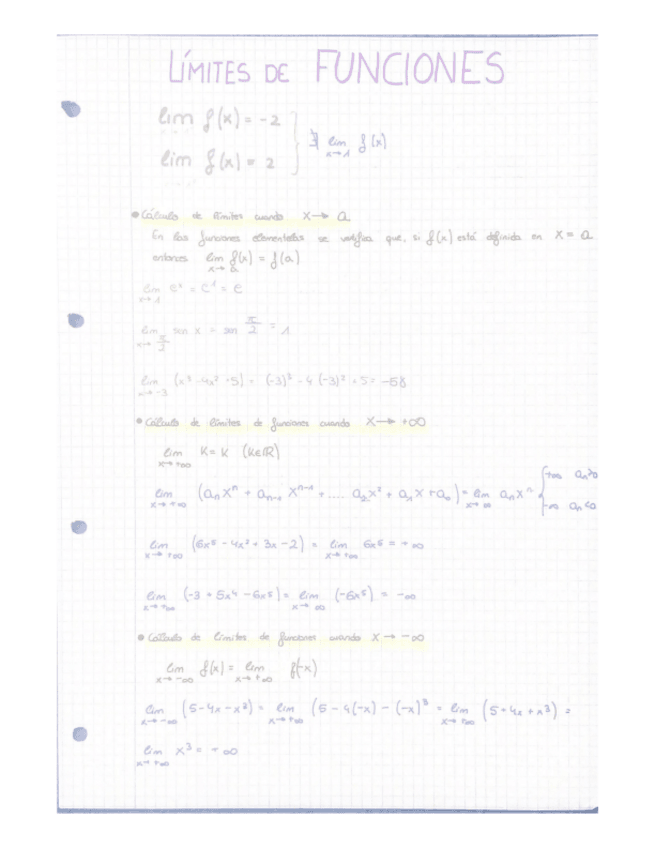 LÍMITES DE FUNCIONES
lim f(x) = -2
lim f(x) = 2 } ∄ lim x→1 f(x)
• Cálculo de límites cuando x → a
En las funciones elementales se verifica que, si f(x) está definida en x = a
entonces lim x→a f(x) = f(a)
lim x→1 eˣ = e¹ = e
lim x→π/2 sen x = sen π/2 = 1
lim x→-3 (x³ - 4x² + 5) = (-3)³ - 4 (-3)² + 5 = -58
• Cálculo de límites de funciones cuando x → +∞
lim x→+∞ K = K (K∈ℝ)
lim x→+∞ (aₙxⁿ + aₙ₋₁ xⁿ⁻¹ + .... a₂x² + a₁x + a₀) = lim x→∞ aₙxⁿ { +∞ aₙ>0
-∞ aₙ<0
lim x→+∞ (6x⁵ - 4x² + 3x - 2) = lim x→+∞ 6x⁵ = +∞
lim x→+∞ (-3 + 5x⁴ - 6x⁵) = lim x→∞ (-6x⁵) = -∞
• Cálculo de límites de funciones cuando x → -∞
lim x→-∞ f(x) = lim x→+∞ f(-x)
lim x→-∞ (5 - 4x - x³) = lim x→+∞ (5 - 4(-x) - (-x)³ = lim x→+∞ (5 + 4x + x³) =
lim x→+∞ x³ = +∞